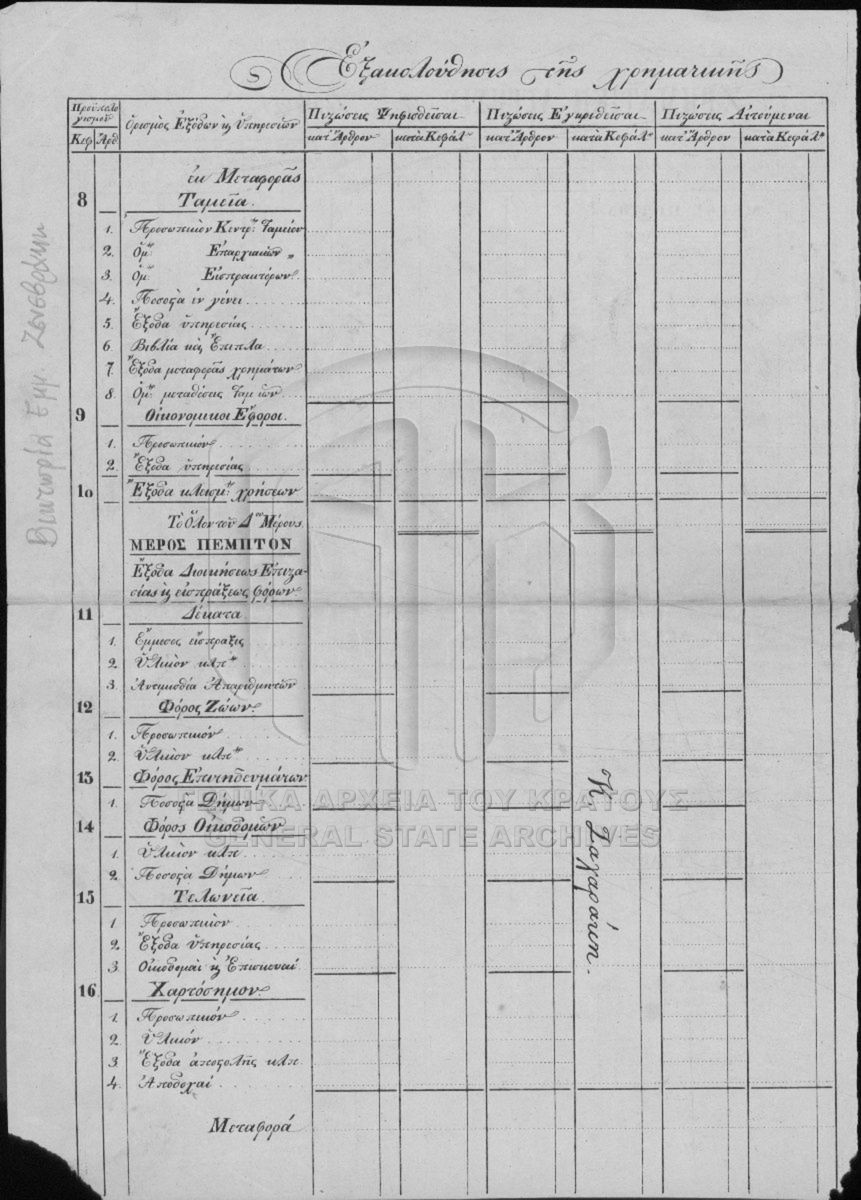 Ἐξακολούθησις τῆς χρηματικῆς
Προϋπολογισμοῦ
Ὁρισμὸς Ἐξόδων ἢ Ὑπηρεσιῶν
Πιζώσεις Ψηφισθεῖσαι
Πιζώσεις Ἐγκριθεῖσαι
Πιζώσεις Αἰτούμεναι
Κεφ.
Ἀρθ.
κατ' Ἄρθρον
κατὰ Κεφάλ.
κατ' Ἄρθρον
κατὰ Κεφάλ.
κατ' Ἄρθρον
κατὰ Κεφάλ.
ἐκ Μεταφορᾶς
8 Ταμεῖα.
1. Προσωπικὸν Κεντρ. Ταμείου
2. Ὁμ. Ἐπαρχιακῶν "
3. Ὁμ. Εἰσπρακτόρων.
4. Ποσοςὰ ἐν γένει
5. Ἔξοδα ὑπηρεσίας
6. Βιβλία καὶ Ἔπιπλα
7. Ἔξοδα μεταφορᾶς χρημάτων
8. Ὁμ. μεταθέσεις Ταμιῶν
9 Οἰκονομικοὶ Ἔφοροι.
1. Προσωπικόν
2. Ἔξοδα ὑπηρεσίας
10 Ἔξοδα κλεισμ. χρήσεων
Τὸ Ὅλον τοῦ Δου Μέρους
ΜΕΡΟΣ ΠΕΜΠΤΟΝ
Ἔξοδα Διοικήσεως Ἐπιζα-
σίας ἢ εἰσπράξεως φόρων
11 Δέκατα
1. Ἔμμεσος εἴσπραξις
2. Ὑλικὸν κλπ
3. Ἀντιμισθία Ἀπαριθμητῶν
12 Φόρος Ζώων.
1. Προσωπικόν
2. Ὑλικὸν κλπ
13 Φόρος Ἐπιτηδευμάτων
1. Ποσοςὰ Δήμων
14 Φόρος Οἰκοδομῶν
1. Ὑλικὸν κλπ
2. Ποσοςὰ Δήμων
15 Τελωνεῖα.
1 Προσωπικὸν
2 Ἔξοδα ὑπηρεσίας
3. Οἰκοδομαὶ ἢ Ἐπισκευαί
16 Χαρτόσημον.
1. Προσωπικόν
2. Ὑλικόν
3 Ἔξοδα ἀποςολῆς κλπ.
4. Ἀποδοχαί
Μεταφορά
Βικτωρία Εμμ
Κ. Ζαχαράκη.
ΓΕΝΙΚΑ ΑΡΧΕΙΑ ΤΟΥ ΚΡΑΤΟΥΣ
GENERAL STATE ARCHIVES